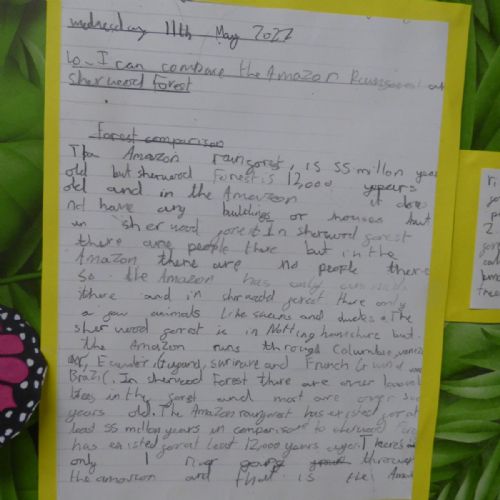 Wednesday 11th May 2022
Lo- I can compare the Amazon Rainforest and
Sherwood Forest
Forest comparison
The Amazon raingorest, is 55 millon years
old but sherwood Forest is 12,000 years
old and in the Amazon it does
not have any buildings or houses but
in sherwood gorest In sherwood gorest
there are people there but in the
Amazon there are no people there
So the Amazon has only
there and in sherwood gorest there only
a gew animals like swans and ducks. The
sherwood gorest is in Notting hameshire but
the Amazon runs through Columbia,
Ecuador, Guyana, surinare and French
Brazil, In sherwood Forest there are over
trees in the gorest and most are over 500
years old. The Amazon raingorest has existed gor at
least 55 millon years in comparison to sherwood
has existed gor at least 12,000 years There's
only 1 river
the amazon and that is the